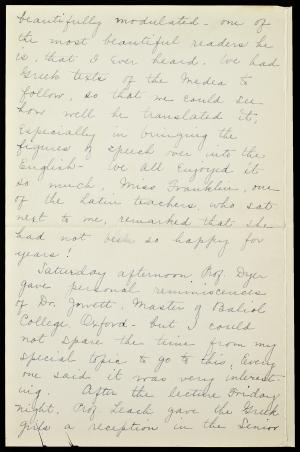 beautifully modulated - one of
the most beautiful readers he
is, that I ever heard. We had
Greek texts of the Medea to
follow, so that we could see
how well he translated it;
Especially in bringing the
figures of speech over into the
English - We all enjoyed it
so much, Miss Franklin, one
of the Latin teachers, who sat
next to me, remarked that she
had not been so happy for
years!
Saturday afternoon Prof. Dyer
gave personal reminiscences
of Dr. Jowett, Master of Baliol
College, Oxford - but I could
not spare the time from my
special topic to go to this, Every
one said it was very interest-
ing. After the lecture Friday
night, Prof. Leach gave the Greek
girls a reception in the Senior